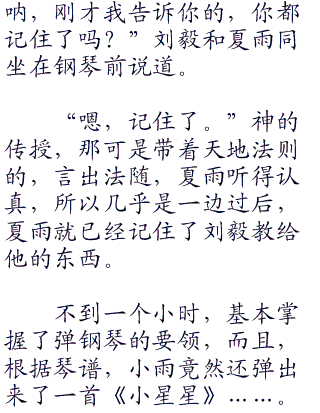 呐，刚才我告诉你的，你都
记住了吗？”刘毅和夏雨同
坐在钢琴前说道。
“嗯，记住了。”神的
传授，那可是带着天地法则
的，言出法随，夏雨听得认
真，所以几乎是一边过后，
夏雨就已经记住了刘毅教给
他的东西。
不到一个小时，基本掌
握了弹钢琴的要领，而且，
根据琴谱，小雨竟然还弹出
来了一首《小星星》……。